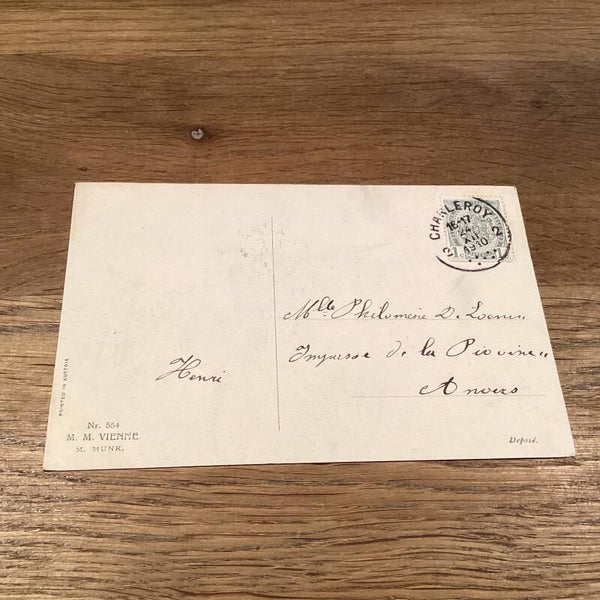 CHARLEROY
2 2
16-17
24
XII
1910
1 1
Mlle Philomène D. Loenen
Impasse de la Pivoine
Anvers
Henri
PRINTED IN AUSTRIA
Nr. 554
M. M. VIENNE.
M. MUNK.
Deposé.